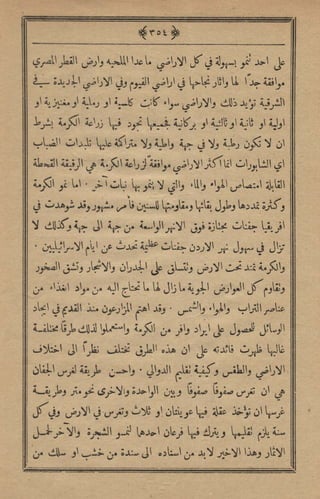 ﴿ ٣٥٤ ﴾
على احد تنمو بسهولة في كل الاراضي ماعدا الملحيه وارض القطر المصري
موافقة جدًا لها واثار نجاحها في اراضي الفيوم وفي الاراضي الجديدة في
الشرقية تؤيد ذلك والاراضي سواء كانت كلسية او رملية او مغنيزية او
اولية او ثانية او ثالثية او بركانية فجميعها تجود فيها زراعة الكرمة بشرط
ان لا تكون رطبة ولا في جهة واطية ولا متراكة عليها تلبدات الضباب
اي الشابورات انما اكثر الاراضي موافقة لزراعة الكرمة هي الرقيقة القحطة
القابلة امتصاص الهواء والماء والتي لا ينمو بها نبات آخر . اما نمو الكرمة
وكثرة تمددها وطول بقائها ومقاومتها للسنين فأمر مشهور وقد شوهدت في
افريقيا جفنات مجتازة فوق الانهر الواسعة من جهة الى جهة وكذلك لا
تزال في سهول نهر الاردن جفنات عظيمة تحدث عن ايام الاسرائيليين .
والكرمة تمتد تحت الارض وتتسلق على الجدران والاشجار وتشق الصخور
وتقاوم كل العوارض الجوية ما زال لها ما تحتاج اليه من مواد اغذاء من
عناصر التراب والهواء والشمس . وقد اهتم المزارعون منذ القديم في ايجاد
الوسائل للحصول على ايراد وافر من الكرمة واستعملوا لذلك طرقًا مختلفة
غالبها ظهرت فائدته على ان هذه الطرق تختلف نظرًا الى اختلاف
الاراضي والطقس وكيفية تقليم الدوالي . واحسن طريقة لغرس الجفان
هي ان تغرس صفوفًا صفوفًا وبين الواحدة والاخرى نحو متر وطريقة
غرسها ان تؤخذ عقلة فيها عوينتان او ثلاث وتغرس في الارض وفي كل
سنة يلزم تقليمها ويترك فيها فرعان احدها لنمو الشجرة والآخر لحمل
الاثمار وهذا الاخير لابد من اسناده الى سندة من خشب او سلك من